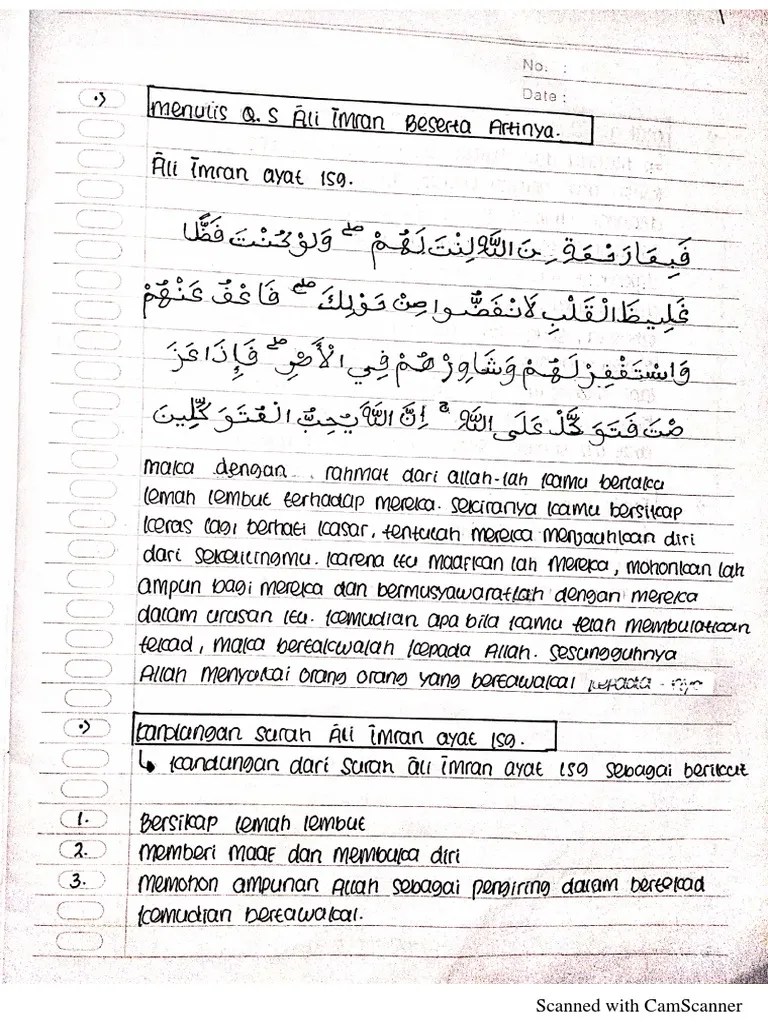 No. :
Date :
•) Menulis Q.S Āli Īmran Beserta Artinya.
Āli Īmran ayat 159.
فَبِمَا رَحْمَةٍ مِنَ اللَّهِ لِنْتَ لَهُمْ ۖ وَلَوْ كُنْتَ فَظًّا
غَلِيظَ الْقَلْبِ لَانْفَضُّوا مِنْ حَوْلِكَ ۖ فَاعْفُ عَنْهُمْ
وَاسْتَغْفِرْ لَهُمْ وَشَاوِرْهُمْ فِي الْأَمْرِ ۖ فَإِذَا عَزَ
مْتَ فَتَوَكَّلْ عَلَى اللَّهِ ۚ إِنَّ اللَّهَ يُحِبُّ الْمُتَوَكِّلِينَ
Maka dengan rahmat dari allah-lah kamu berlaku
lemah lembut terhadap mereka. Sekiranya kamu bersikap
keras lagi berhati kasar, tentulah mereka menjauhkan diri
dari sekelilingmu. karena itu maafkan lah mereka, mohonkan lah
ampun bagi mereka dan bermusyawaratlah dengan mereka
dalam urusan itu. kemudian apa bila kamu telah membulatkan
tekad, maka bertakwalah kepada Allah. sesungguhnya
Allah menyukai orang orang yang bertawakal kepada-nya
•) kandungan surah Āli Īmran ayat 159.
↳ kandungan dari surah āli īmran ayat 159 sebagai berikut
1. Bersikap lemah lembut
2. Memberi maaf dan membuka diri
3. Memohon ampunan Allah sebagai pengiring dalam bertekad
kemudian bertawakal.
Scanned with CamScanner